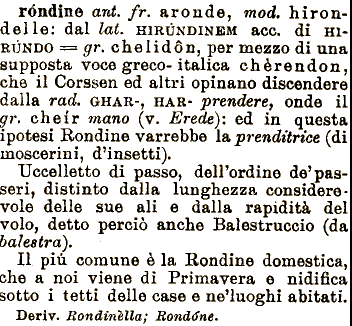 róndine ant. fr. aronde, mod. hiron-
delle: dal lat. HIRÚNDINEM acc. di HI-
RÚNDO = gr. chelidôn, per mezzo di una
supposta voce greco-italica chèrendon,
che il Corssen ed altri opinano discendere
dalla rad. GHAR-, HAR- prendere, onde il
gr. cheír mano (v. Erede): ed in questa
ipotesi Rondine varrebbe la prenditrice (di
moscerini, d'insetti).
Uccelletto di passo, dell'ordine de' pas-
seri, distinto dalla lunghezza considere-
vole delle sue ali e dalla rapidità del
volo, detto perciò anche Balestruccio (da
balestra).
Il piú comune è la Rondine domestica,
che a noi viene di Primavera e nidifica
sotto i tetti delle case e ne' luoghi abitati.
Deriv. Rondinèlla; Rondóne.